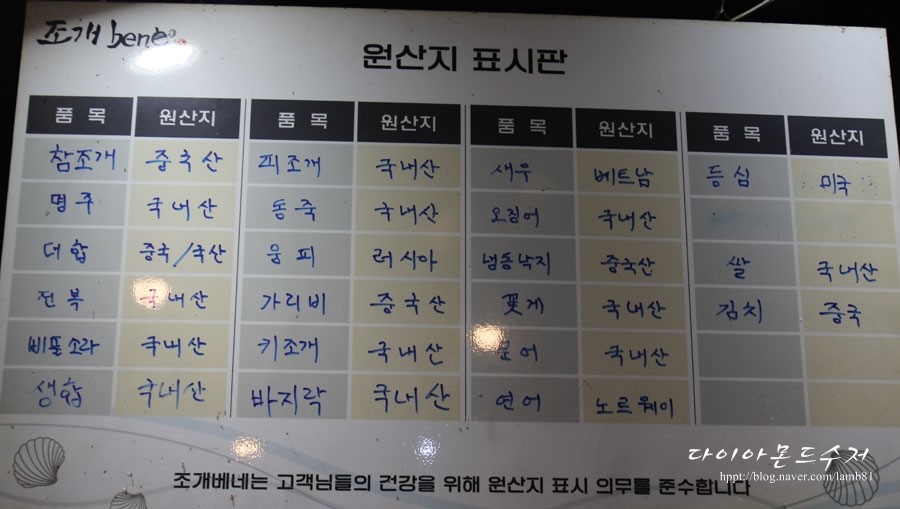 조개 bene
원산지 표시판
품목 원산지 품목 원산지 품목 원산지 품목 원산지
참조개 중국산 피조개 국내산 새우 베트남 등심 미국
명주 국내산 동죽 국내산 오징어 국내산
대합 중국/국산 웅피 러시아 냉동낙지 중국산 쌀 국내산
전복 국내산 가리비 중국산 꽃게 국내산 김치 중국
삐뚤소라 국내산 키조개 국내산 문어 국내산
생합 국내산 바지락 국내산 연어 노르웨이
다이아몬드수저
hppt://blog.naver.com/lamb81
조개베네는 고객님들의 건강을 위해 원산지 표시 의무를 준수합니다